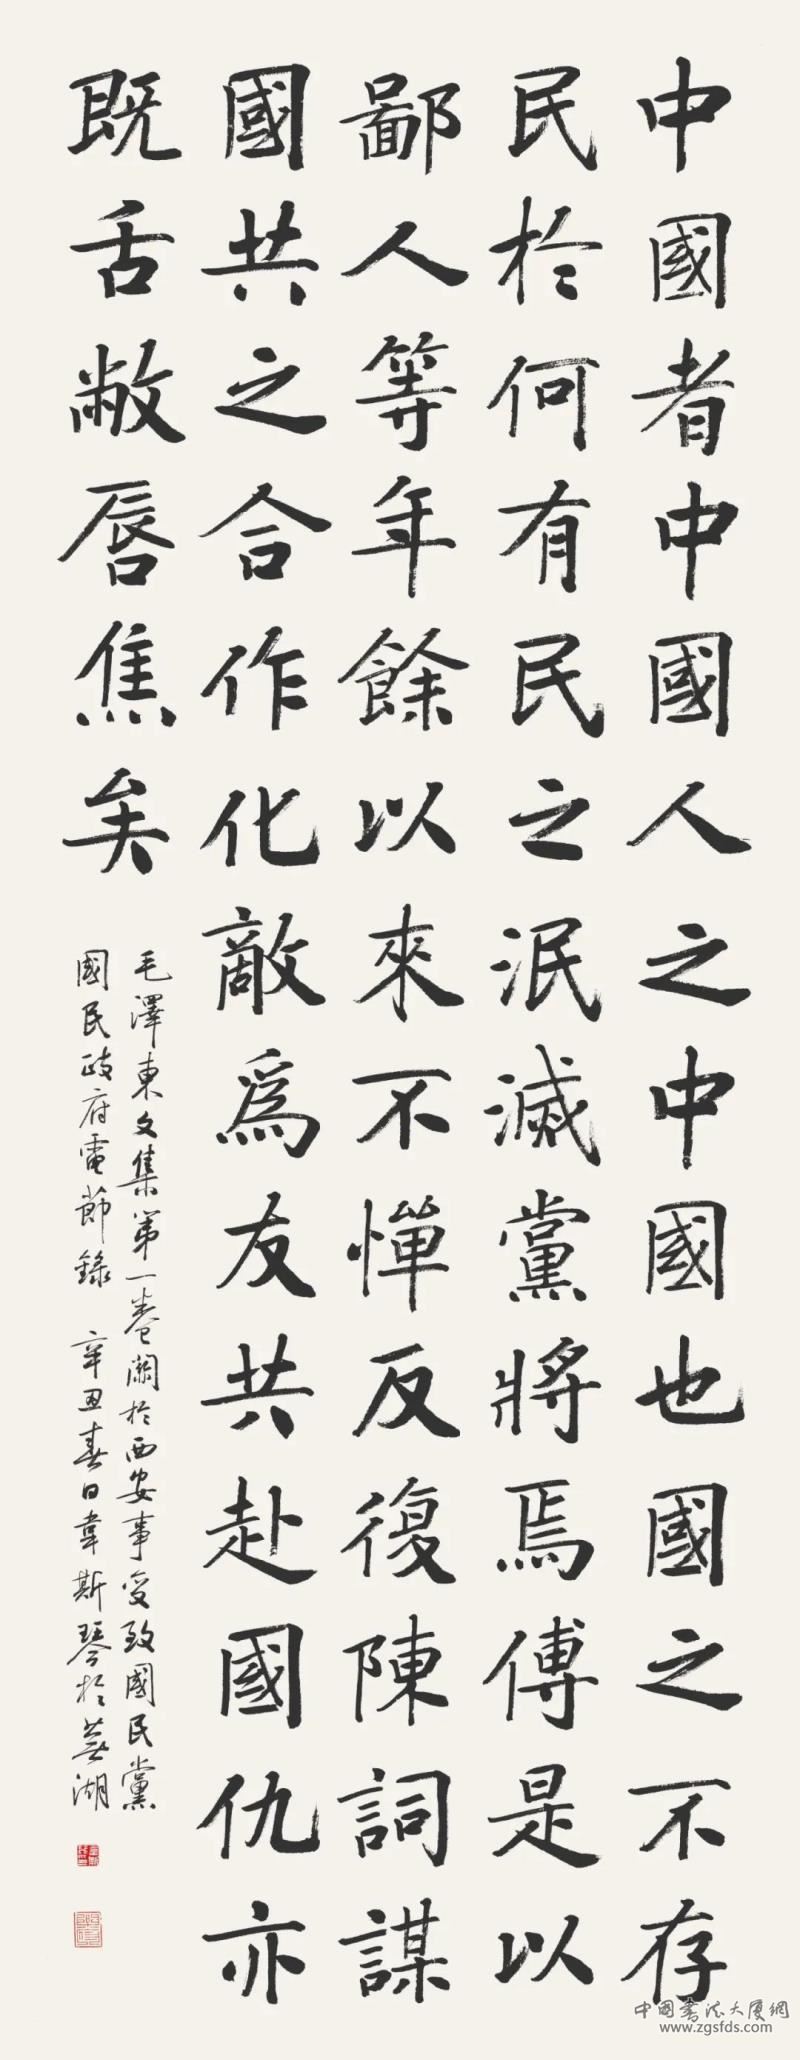 中國者中國人之中國也國之不存
民於何有民之泯滅黨將焉傅是以
鄙人等年餘以來不憚反復陳詞謀
國共之合作化敵爲友共赴國仇亦
既舌敝唇焦矣
毛澤東文集第一卷關於西安事变致國民黨
國民政府電節錄 辛丑春日韋斯琴於蕪湖
中国书法大厦網
www.zgsfds.com